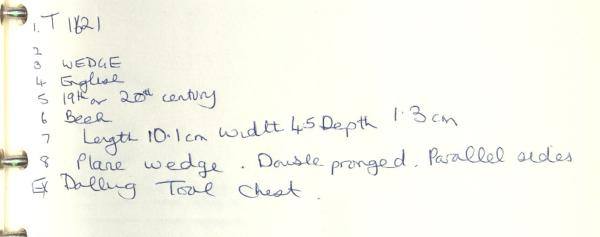 1. T 1621
2
3 WEDGE
4 English
5 19th or 20th century
6 Beech
7 Length 10.1cm Width 4.5 Depth 1.3cm
8 Plane wedge. Double pronged. Parallel sides
Ex Dalling Tool Chest.